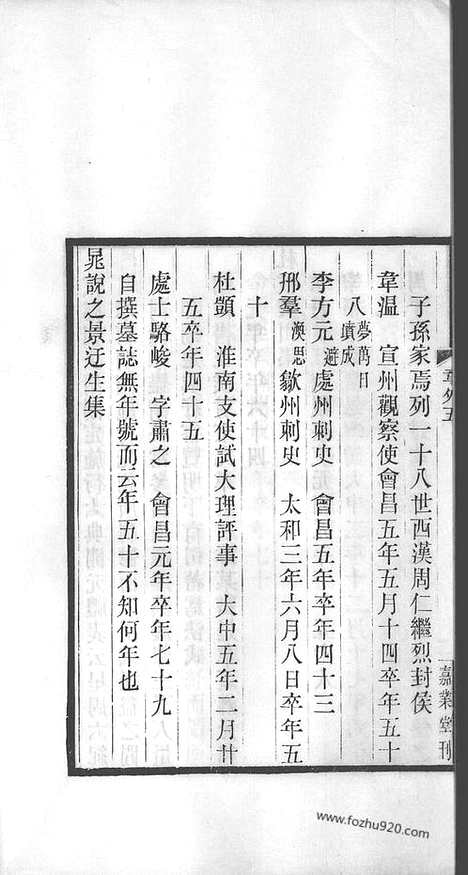 章外五
嘉業堂刊
子孫家焉列一十八世西漢周仁繼烈封侯
韋温 宣州觀察使會昌五年五月十四卒年五十
八夢萬日墳成
李方元避處州刺史 會昌五年卒年四十三
邢羣渙思歙州刺史 太和三年六月八日卒年五
十
杜顗 淮南支使試大理評事 大中五年二月廿
五卒年四十五
處士駱峻 字肅之 會昌元年卒年七十九
自撰墓誌無年號而云年五十不知何年也
晁說之景迂生集
www.fozhu920.com